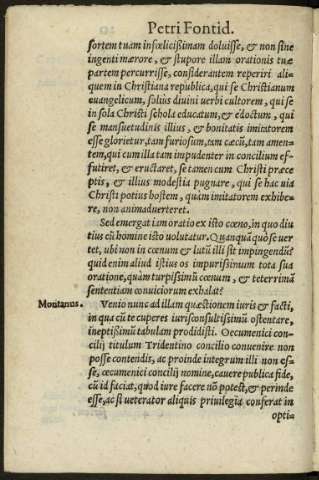 Petri Fontid.
sortem tuam infœlicißimam doluisse, & non sine
ingenti mœrore, & stupore illam orationis tuæ
partem percurrisse, considerantem reperiri ali-
quem in Christiana republica, qui se Christianum
euangelicum, solius diuini uerbi cultorem, qui se
in sola Christi schola educatum, & edoctum, qui
se mansuetudinis illius, & bonitatis imitatorem
esse glorietur, tam furiosum, tam cæcū, tam amen-
tem, qui cum illa tam impudenter in concilium ef-
futiret, & eructaret, se tamen cum Christi præce
ptis, & illius modestia pugnare, qui se hac uia
Christi potius hostem, quàm imitatorem exhibe-
re, non animaduerteret.
Sed emergat iam oratio ex isto cœno, in quo diu
tius cū homine isto uolutatur. Quanquā quò se uer
tet, ubi non in cœnum & lutū illi sit impingendū?
quid enim aliud istius os impurißimum tota sua
oratione, quàm turpißimū cœnum, & teterrimā
sententiam conuiciorum exhalat?
Montanus.
Venio nunc ad illam quæstionem iuris & facti,
in qua cū te cuperes iurisconsultißimū ostentare,
ineptißimū tabulam prodidisti. Oecumenici con-
cilij titulum Tridentino concilio conuenire non
posse contendis, ac proinde integrum illi non es-
se, œcumenici concilij nomine, cauere publica fide,
cū id faciat, quod iure facere nō potest, & perinde
esse, ac si ueterator aliquis priuilegia conferat in
optia